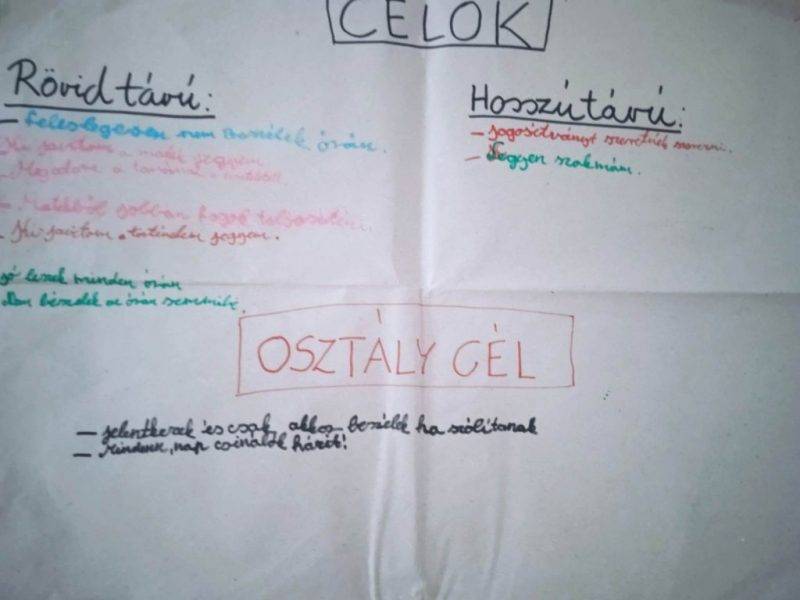 CÉLOK
Rövid távú:
– feleslegesen nem beszélek órán.
Ki javítom a matek jegyem
Megadom a tanárnak a
– Matekból jobban fogok teljesíteni.
– Ki javítom a történelem jegyem.
jó leszek minden órán
Nem beszélek az órán semmit.
Hosszútávú:
– jogosítványt szeretnék szerezni.
– Legyen szakmám.
OSZTÁLY CÉL
– jelentkezek és csak akkor beszélek ha szólítanak
– Minden nap csinálok házit!